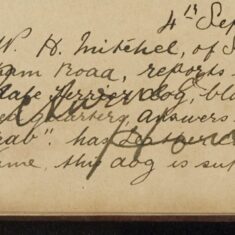 4th Sep
W. H. Mitchel, of S
ham Road, reports
dale Terrier dog, bla
quarters, answers
rab". has Leather C
ame, this dog is sup